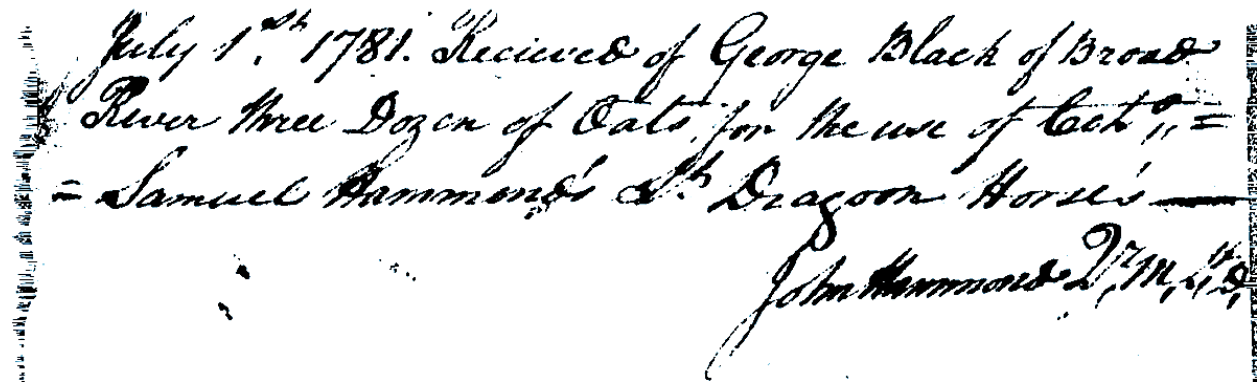 July 1st. 1781. Recieved of George Black of Broad
River three Dozen of Oats, for the use of Coto,, =
= Samuel Hammond's Lt. Dragoon Horse's —
John Hammond Q,r M, Lt D,